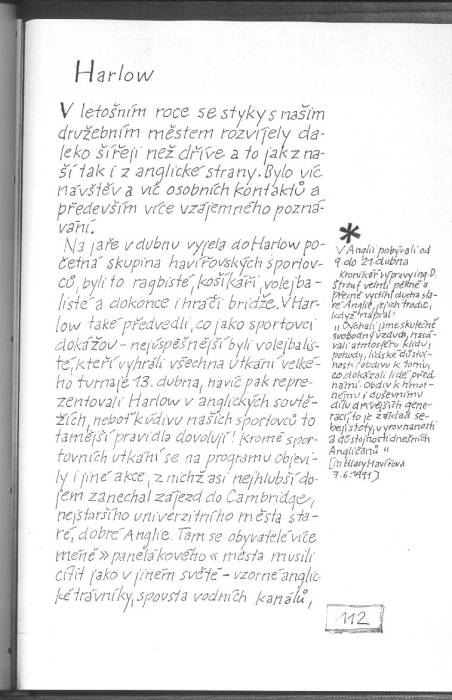 Harlow
V letošním roce se styky s naším
družebním městem rozvíjely da-
leko šířeji než dříve a to jak z na-
ší tak i z anglické strany. Bylo víc
návštěv a víc osobních kontaktů a
především více vzájemného pozná-
vání.
Na jaře v dubnu vyjela do Harlow po-
četná skupina havířovských sportov-
ců, byli to ragbisté, košíkáři, volejba-
listé a dokonce i hráči bridže. V Har-
low také předvedli, co jako sportovci
dokážou - nejúspěšnější byli volejbalis-
té, kteří vyhráli všechna utkání velké-
ho turnaje 13. dubna, navíc pak repre-
zentovali Harlow v anglických soutě-
žích, neboť k údivu našich sportovců to
tamější pravidla dovolují! Kromě spor-
tovních utkání se na programu objevi-
ly i jiné akce, z nichž asi nejhlubší do-
jem zanechal zájezd do Cambridge,
nejstaršího univerzitního města sta-
ré, dobré Anglie. Tam se obyvatelé více
méně »panelákového« města musili
cítit jako v jiném světě - vzorné anglic-
ké trávníky, spousta vodních kanálů,
*
V Anglii pobývali od
9. do 21. dubna
Kronikář výpravy ing. D.
Strouf velmi pěkně a
přesně vystihl ducha sta-
ré Anglie, jejich tradic,
když napsal:
"Dýchali jsme skutečně
svobodný vzduch, nasá-
vali atmosféru klidu i
pohody, lidské důstoj-
nosti i obdiv k tomu,
co dokázali lidé před
námi. Obdiv k hmot-
nému i duševnímu
dílu dřívějších gene-
rací, to je základ se-
bejistoty, vyrovnanosti
a důstojnosti dnešních
Angličanů"
[in Hlasy Havířova
7.6.1991]
112